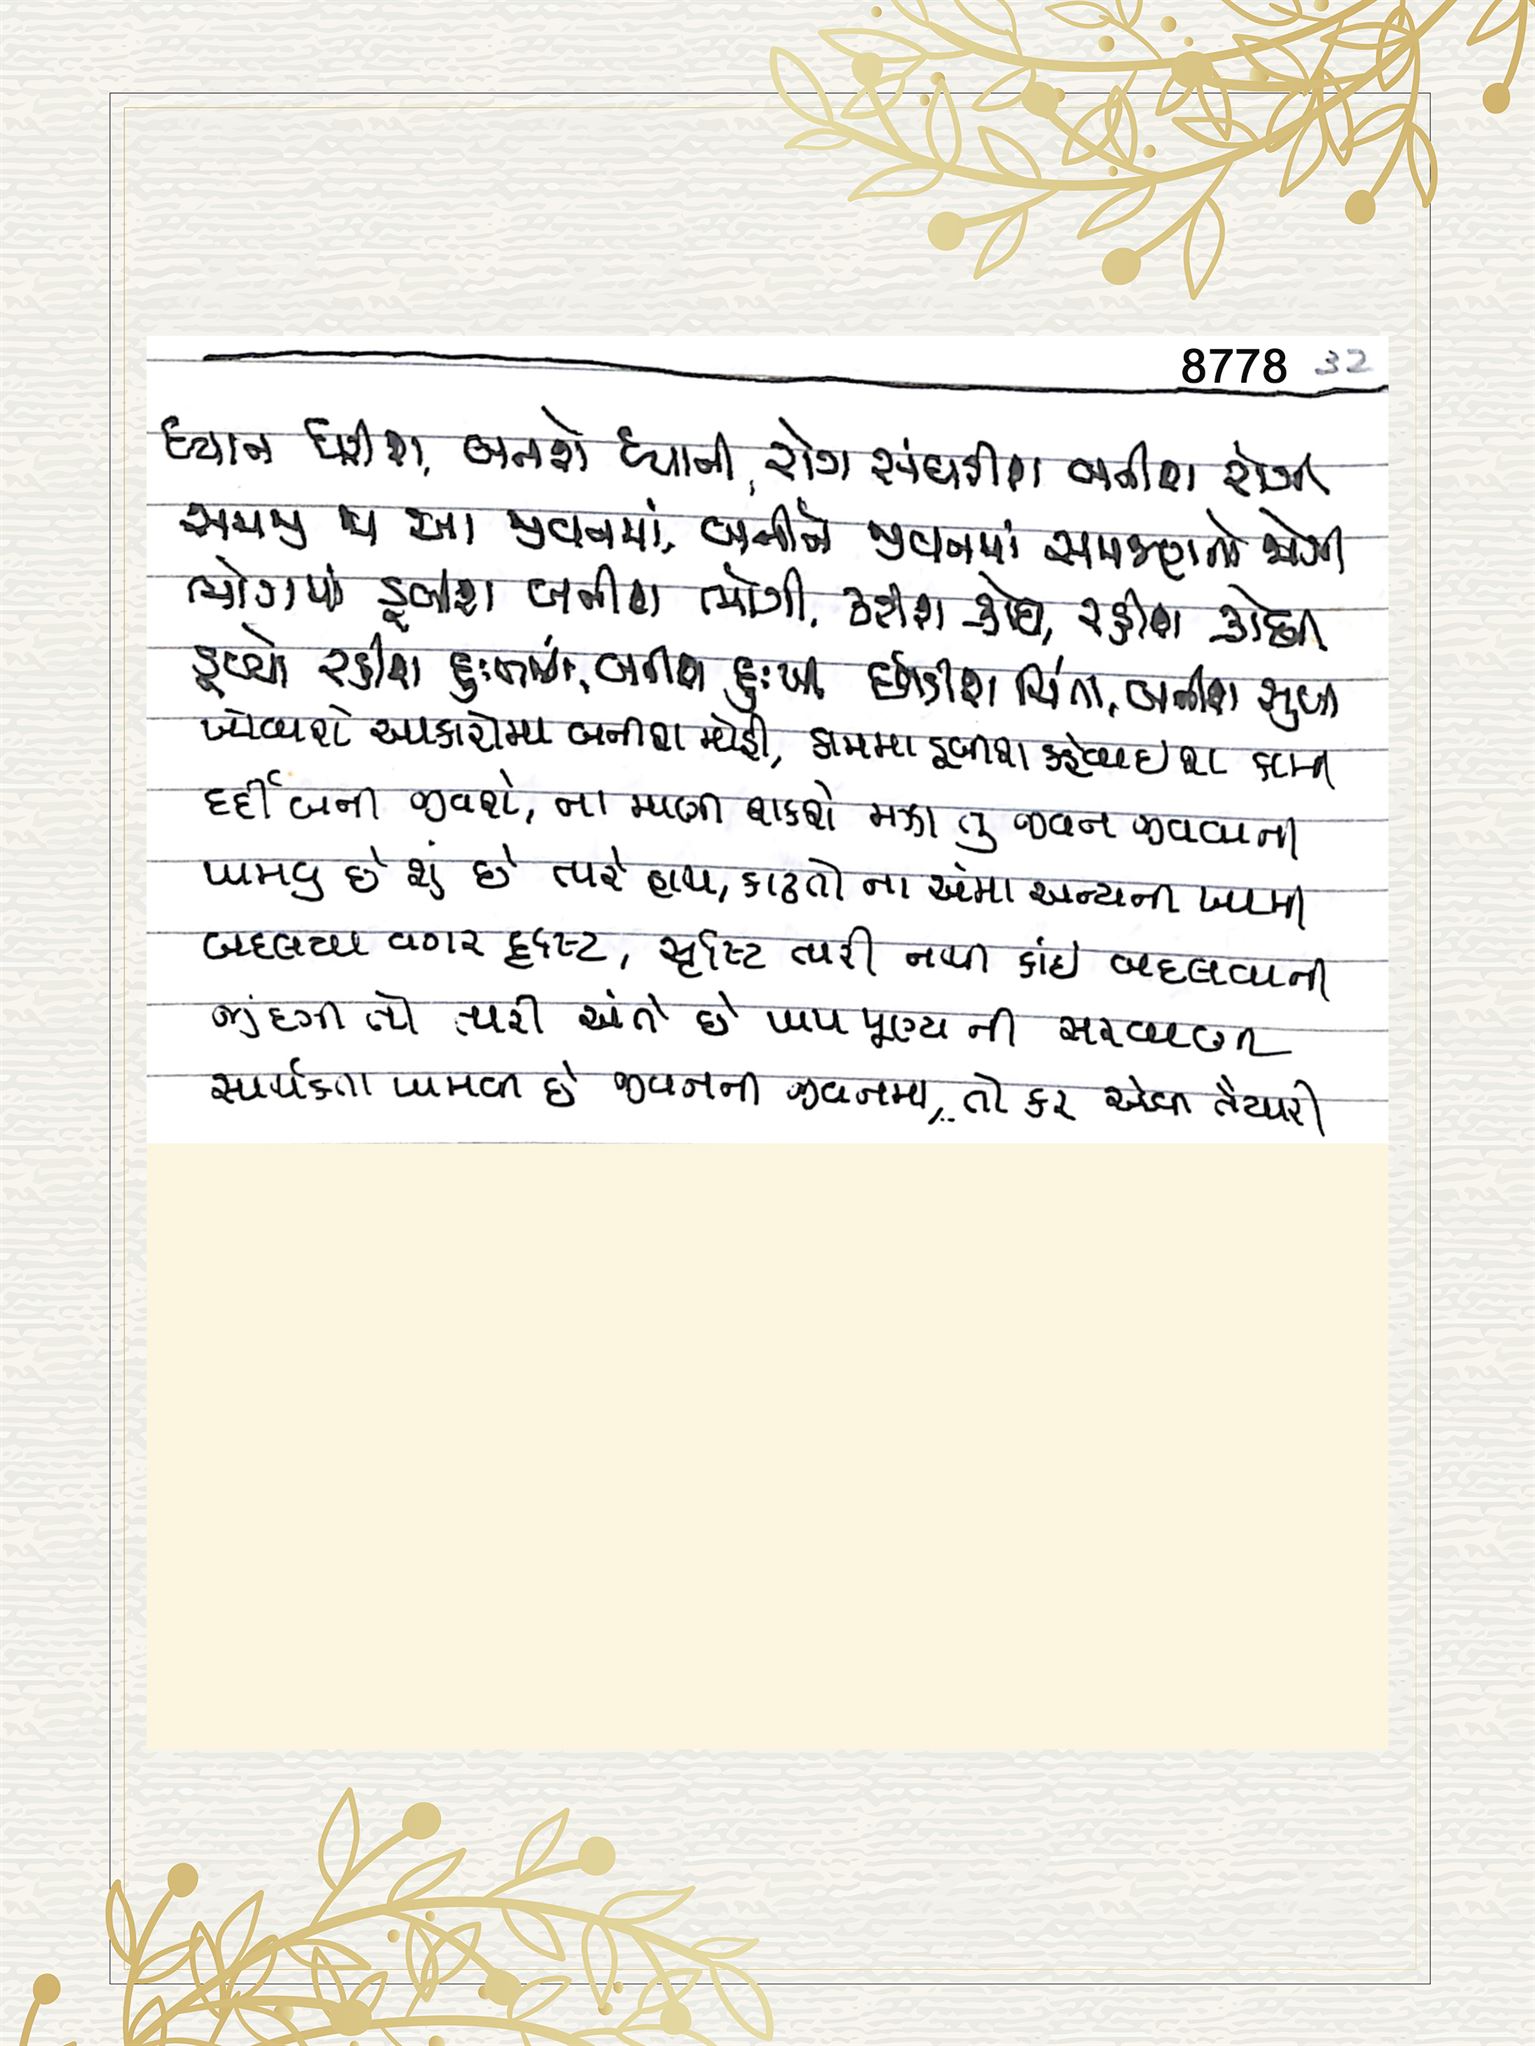 8778 32
ધ્યાન ધરીશ, બનશે ધ્યાની, રોગ સંઘરીશ બનીશ રોગી
સમજી જા આ જીવનમાં, બનીને જીવનમાં સમજણનો
ભોગમાં ડૂબીશ બનીશ ભોગી, કરીશ ક્રોધ, રહીશ ક્રોધી
ડૂબ્યો રહીશ દુઃખમાં, બનીશ દુઃખી છોડીશ ચિંતા, બનીશ સુખી
ખોવાશે આકારોમા બનીશ મોહી, કામમા ડૂબીશ કહેવાઇશ કામી
દર્દી બની જીવશે, ના માણી શકશે મઝા તુ જીવન જીવવાની
પામવુ છે શું છે તારે હાથ, કાઢતો ના એમા અન્યની ખામી
બદલાયા વગર દૃષ્ટિ, સૃષ્ટિ તારી નથી કાંઇ બદલવાની
જીંદગી તો તારી અંતે છે પાપ પૂણ્ય ની સરવાણી
સાર્થકતા પામવી છે જીવનની જીવનમા,.. તો કર એવી તૈયારી